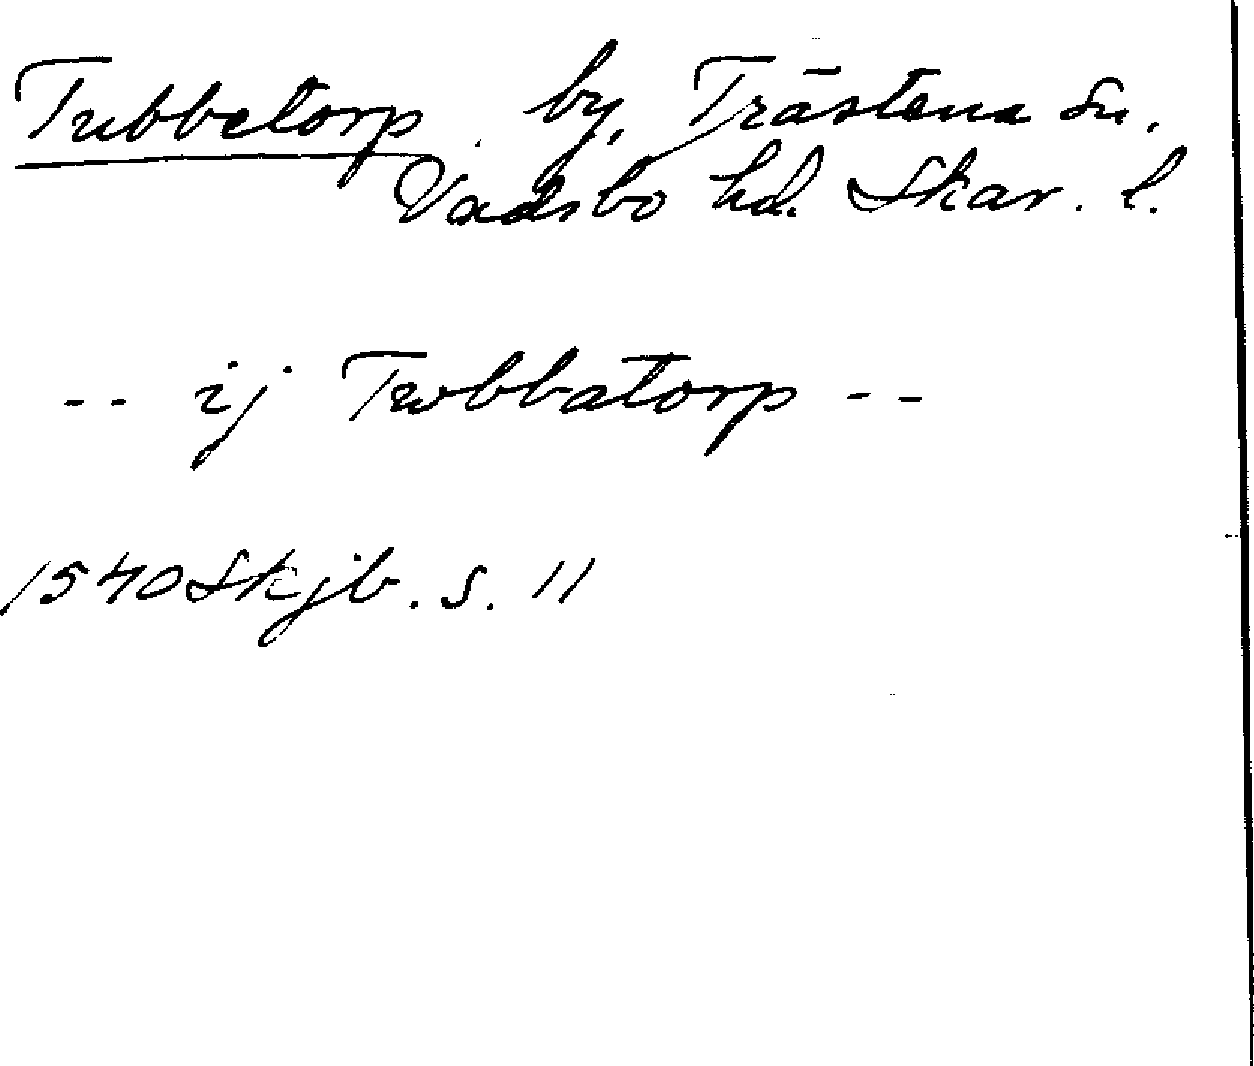 Tubbetorp by, Trästena sn.
Vadsbo hd. Skar. l.
-- ij Twbbatorp --
1540 Skjb. s. 11